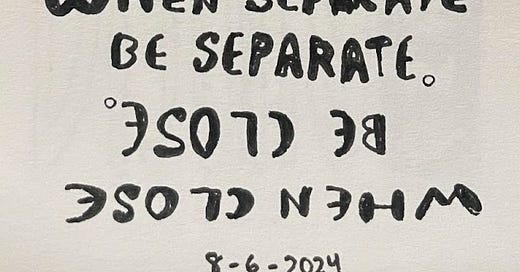 WHEN SEPARATE
BE SEPARATE.
WHEN CLOSE
BE CLOSE.
8-6-2024